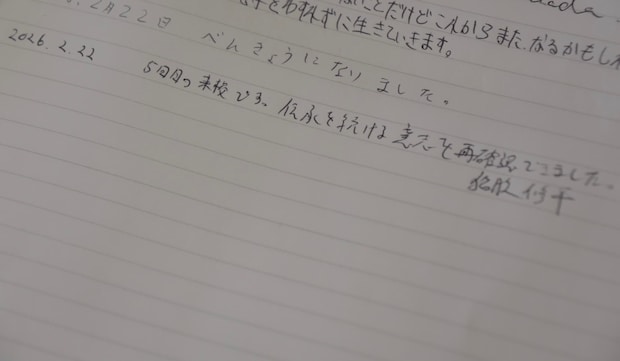 ada
ことだけどこれからまた、なるかもしれ
をわすれずに生きていきます。
2月22日 べんきょうになりました。
2026.2.22 5回目の です。伝承を続ける意志を再確認できました。